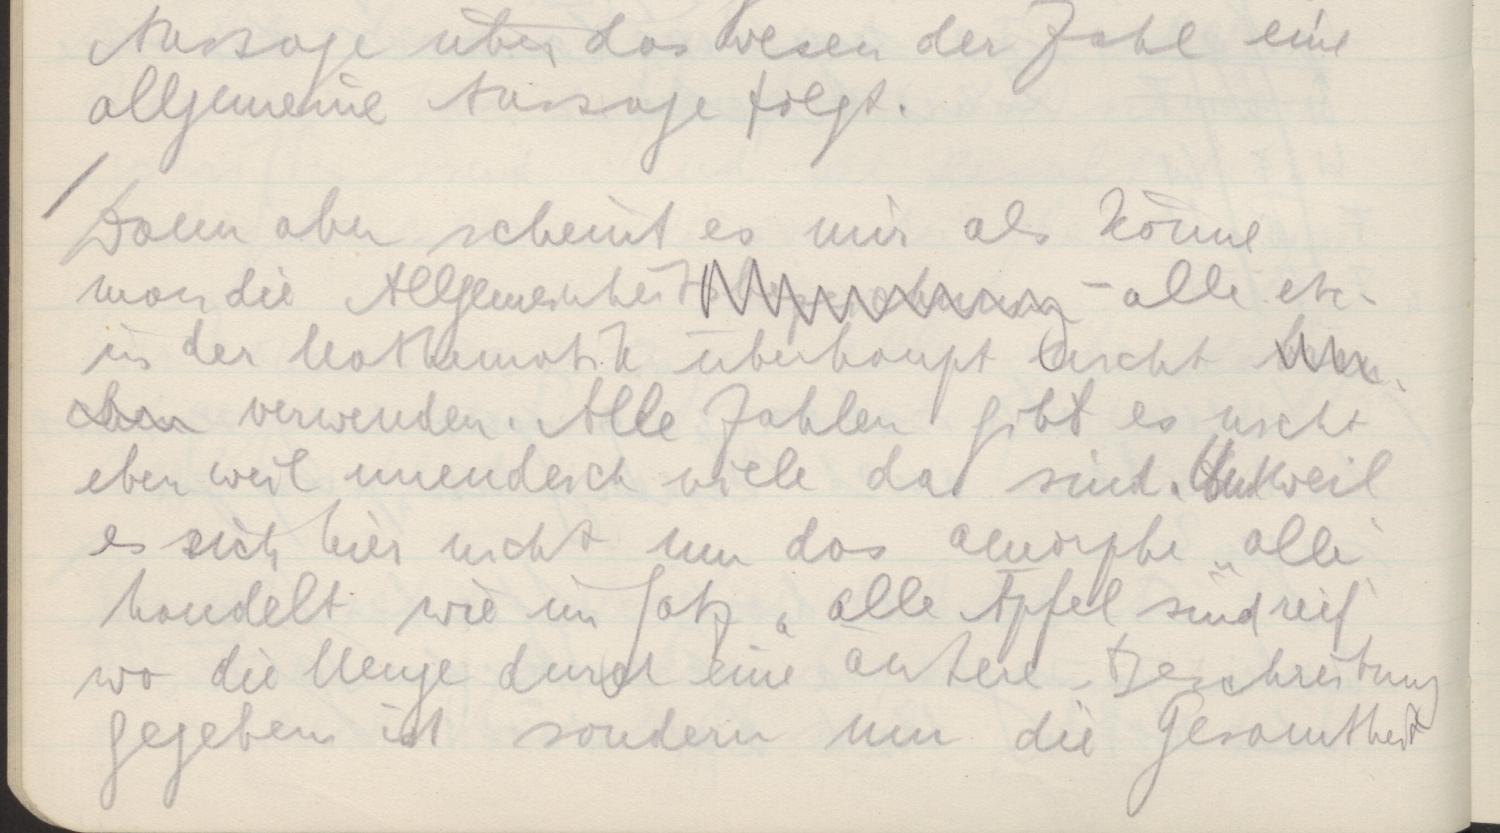 Aussage über das Wesen der Zahl eine
allgemeine Aussage folgt.
/ Dann aber scheint es mir als könne
man die Allgemeinheit – alle etc.
in der Mathematik überhaupt nicht
verwenden. Alle Zahlen gibt es nicht
eben weil unendlich viele da sind. Und weil
es sich hier nicht um das amorphe „alle"
handelt wie im Satz „alle Äpfel sind reif"
wo die Menge durch eine äußere Beschreibung
gegeben ist sondern um die Gesamtheit